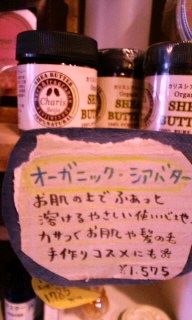 SHEA BUTTER
Charis
カリス
Organ
SHE
BUTT
SH
BUT
オーガニック・シアバター
お肌の上でふあっと
溶けるやさしい
カサつくお肌や髪の毛
手作りコスメにも
¥1,575